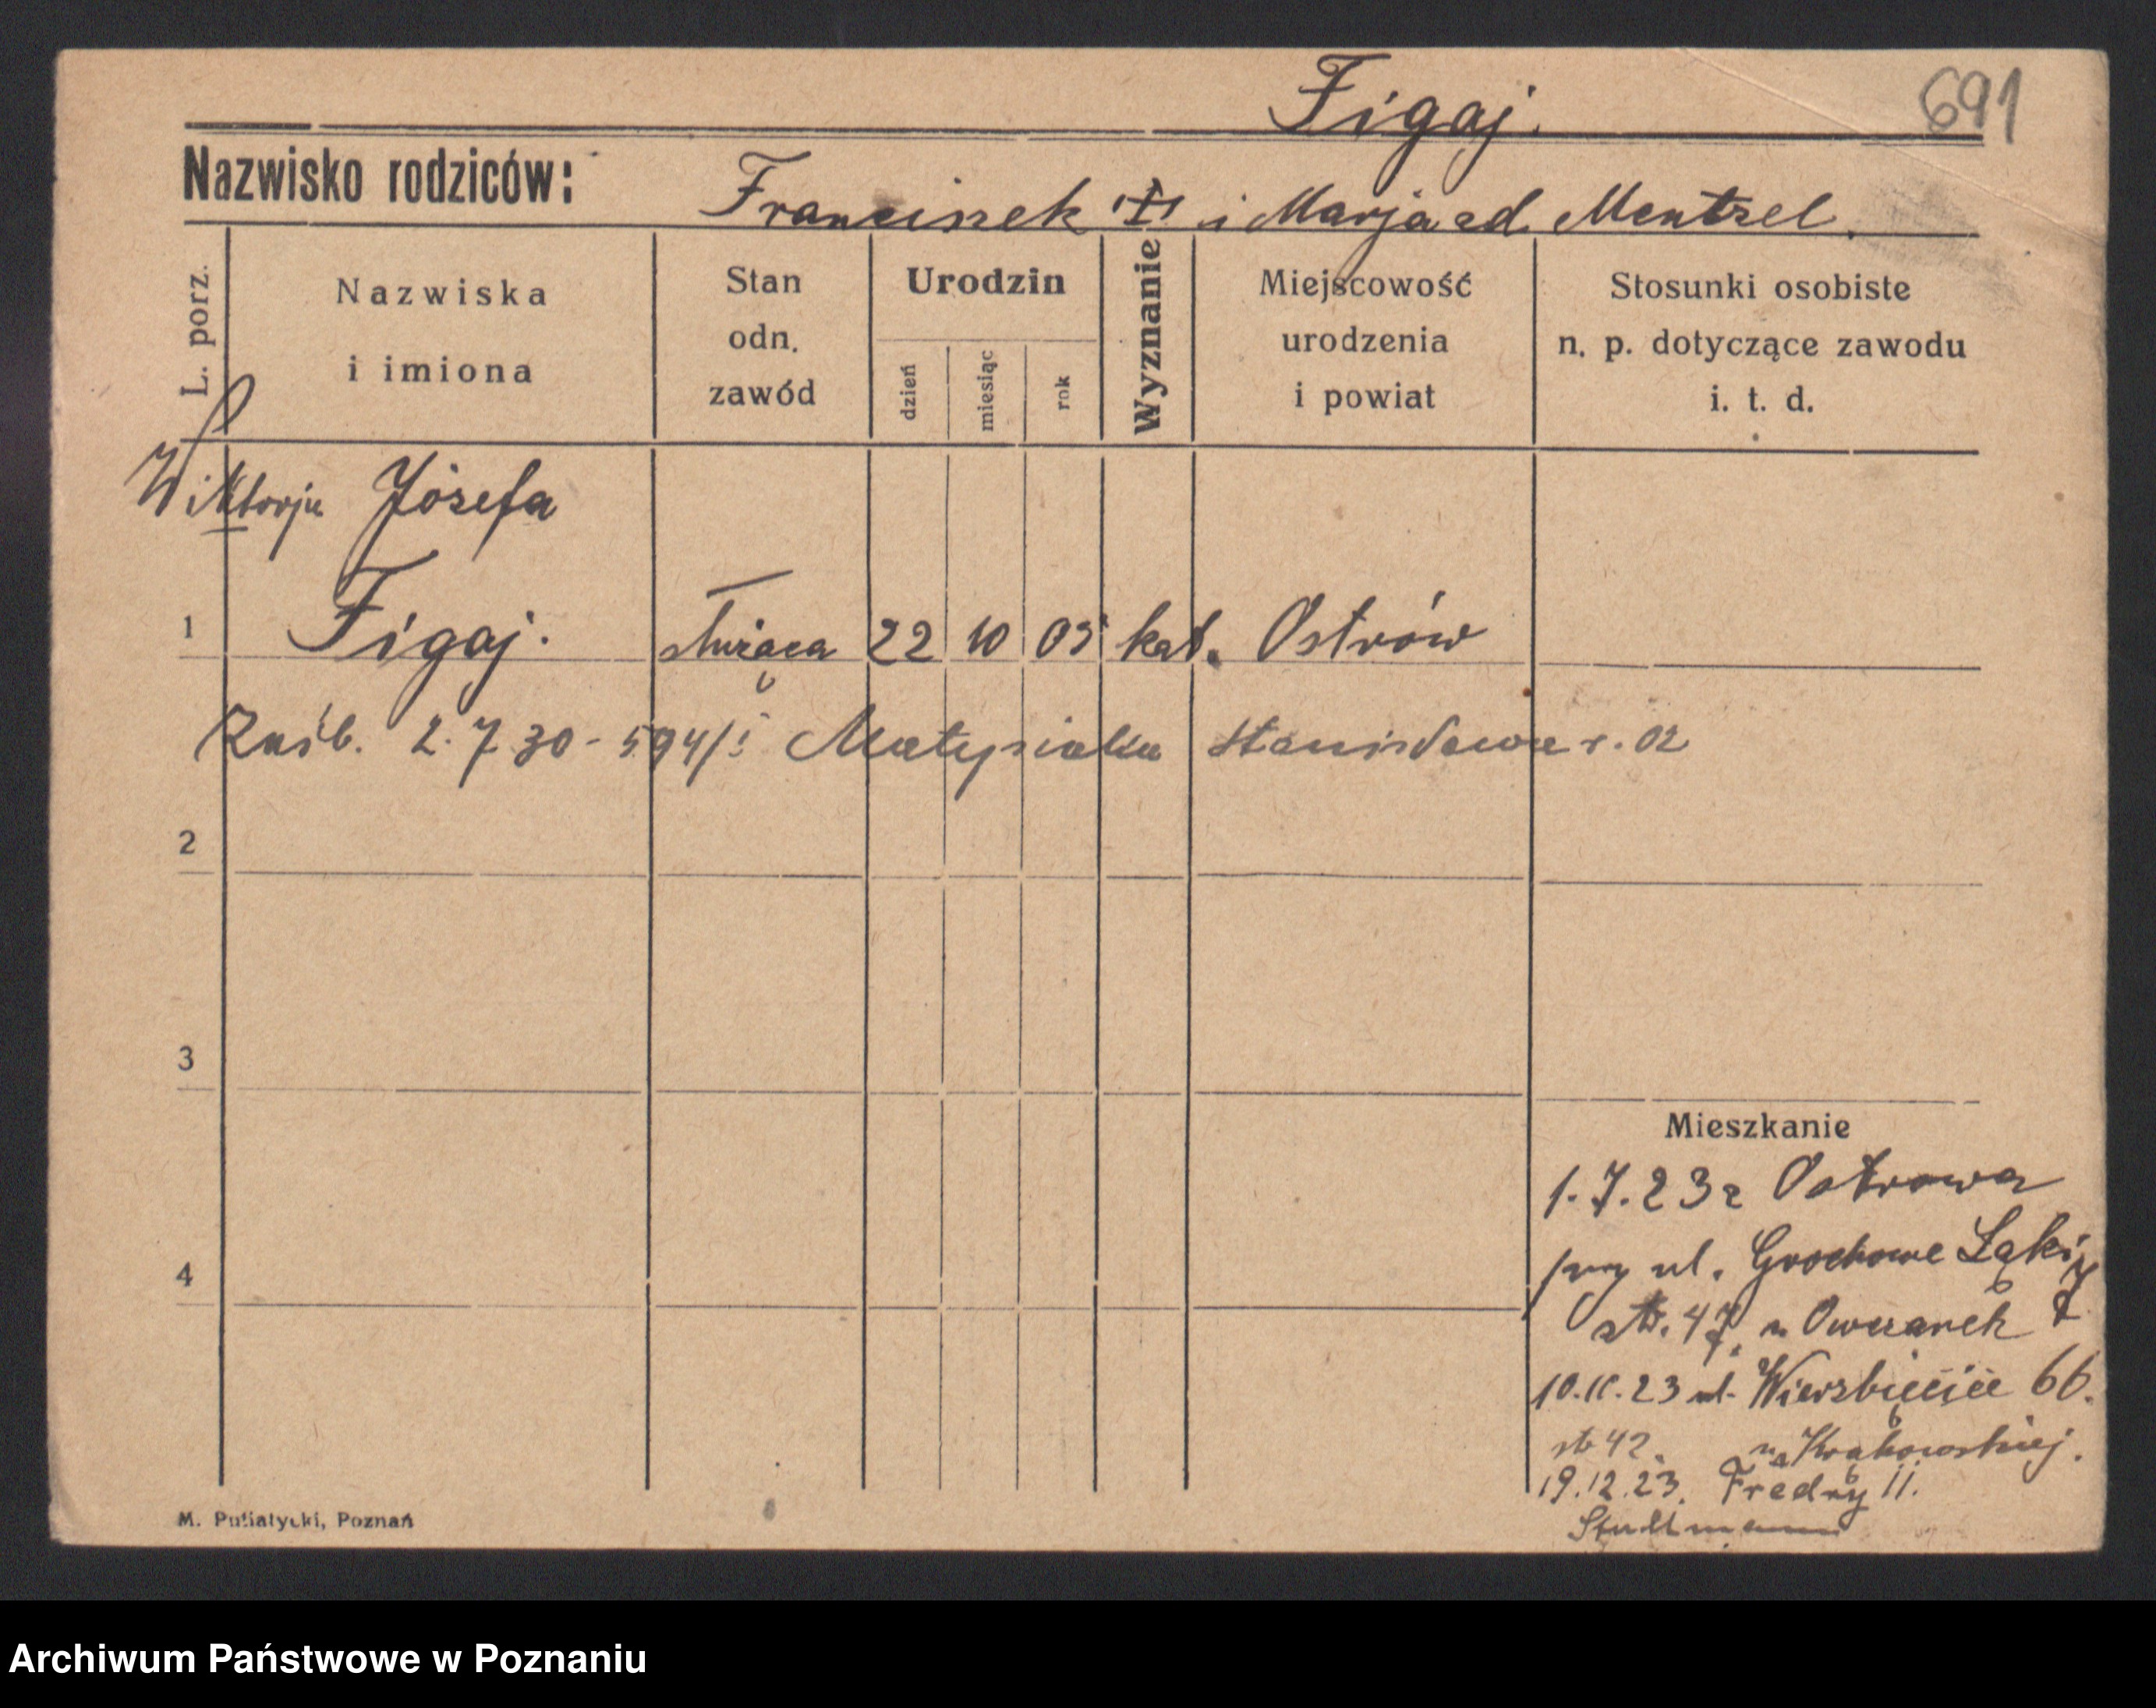 Figaj.
691
Nazwisko rodziców:
Franciszek i Marja zd. Mentzel.
L. porz.
Nazwiska
i imiona
Stan
odn.
zawód
Urodzin
dzień
miesiąc
rok
Wyznanie
Miejscowość
urodzenia
i powiat
Stosunki osobiste
n. p. dotyczące zawodu
i. t. d.
Wiktorja Józefa
1 Figaj. służąca 22 10 05 kat. Ostrów
Zaśb. 2.7.30 - 594/ Matysiaka Stanisława r. 02
2
3
4
Mieszkanie
1.7.23 z Ostrowa
przy ul. Grochowe Łąki 7
str. 47, u Owczarek
10.10.23 ul. Wierzbięcice 66.
str 42. u Krakowskiej.
19.12.23. Fredry 11.
M. Putiatycki, Poznań
Archiwum Państwowe w Poznaniu